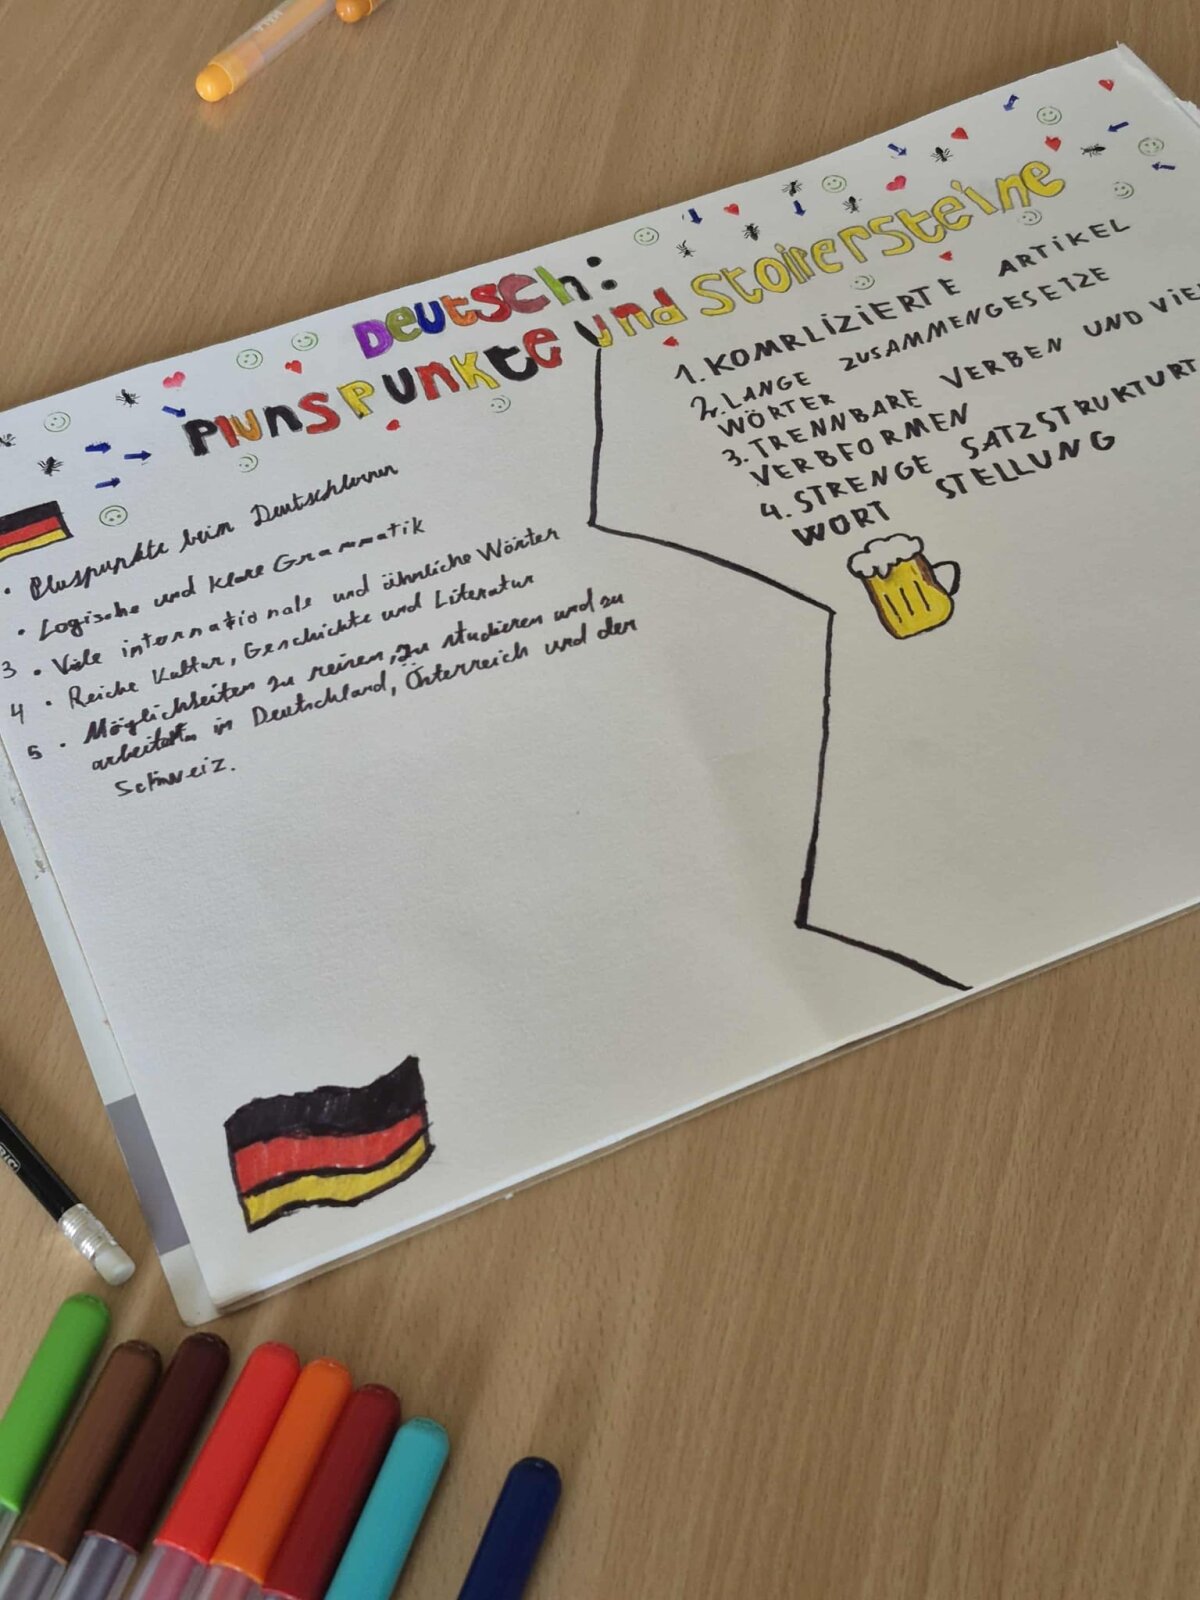 Deutsch:
Plunspunkte und Stolpersteine
• Pluspunkte beim Deutschlernen
• Logische und klare Grammatik
3 • Viele internationale und ähnliche Wörter
4 • Reiche Kultur, Geschichte und Literatur
5 • Möglichkeiten zu reisen, zu studieren und zu
arbeiten in Deutschland, Österreich und der
Schweiz.
1. KOMPLIZIERTE ARTIKEL
2. LANGE ZUSAMMENGESETZE
WÖRTER
3. TRENNBARE VERBEN UND VIE
VERBFORMEN
4. STRENGE SATZSTRUKTURT
WORT STELLUNG
BIC